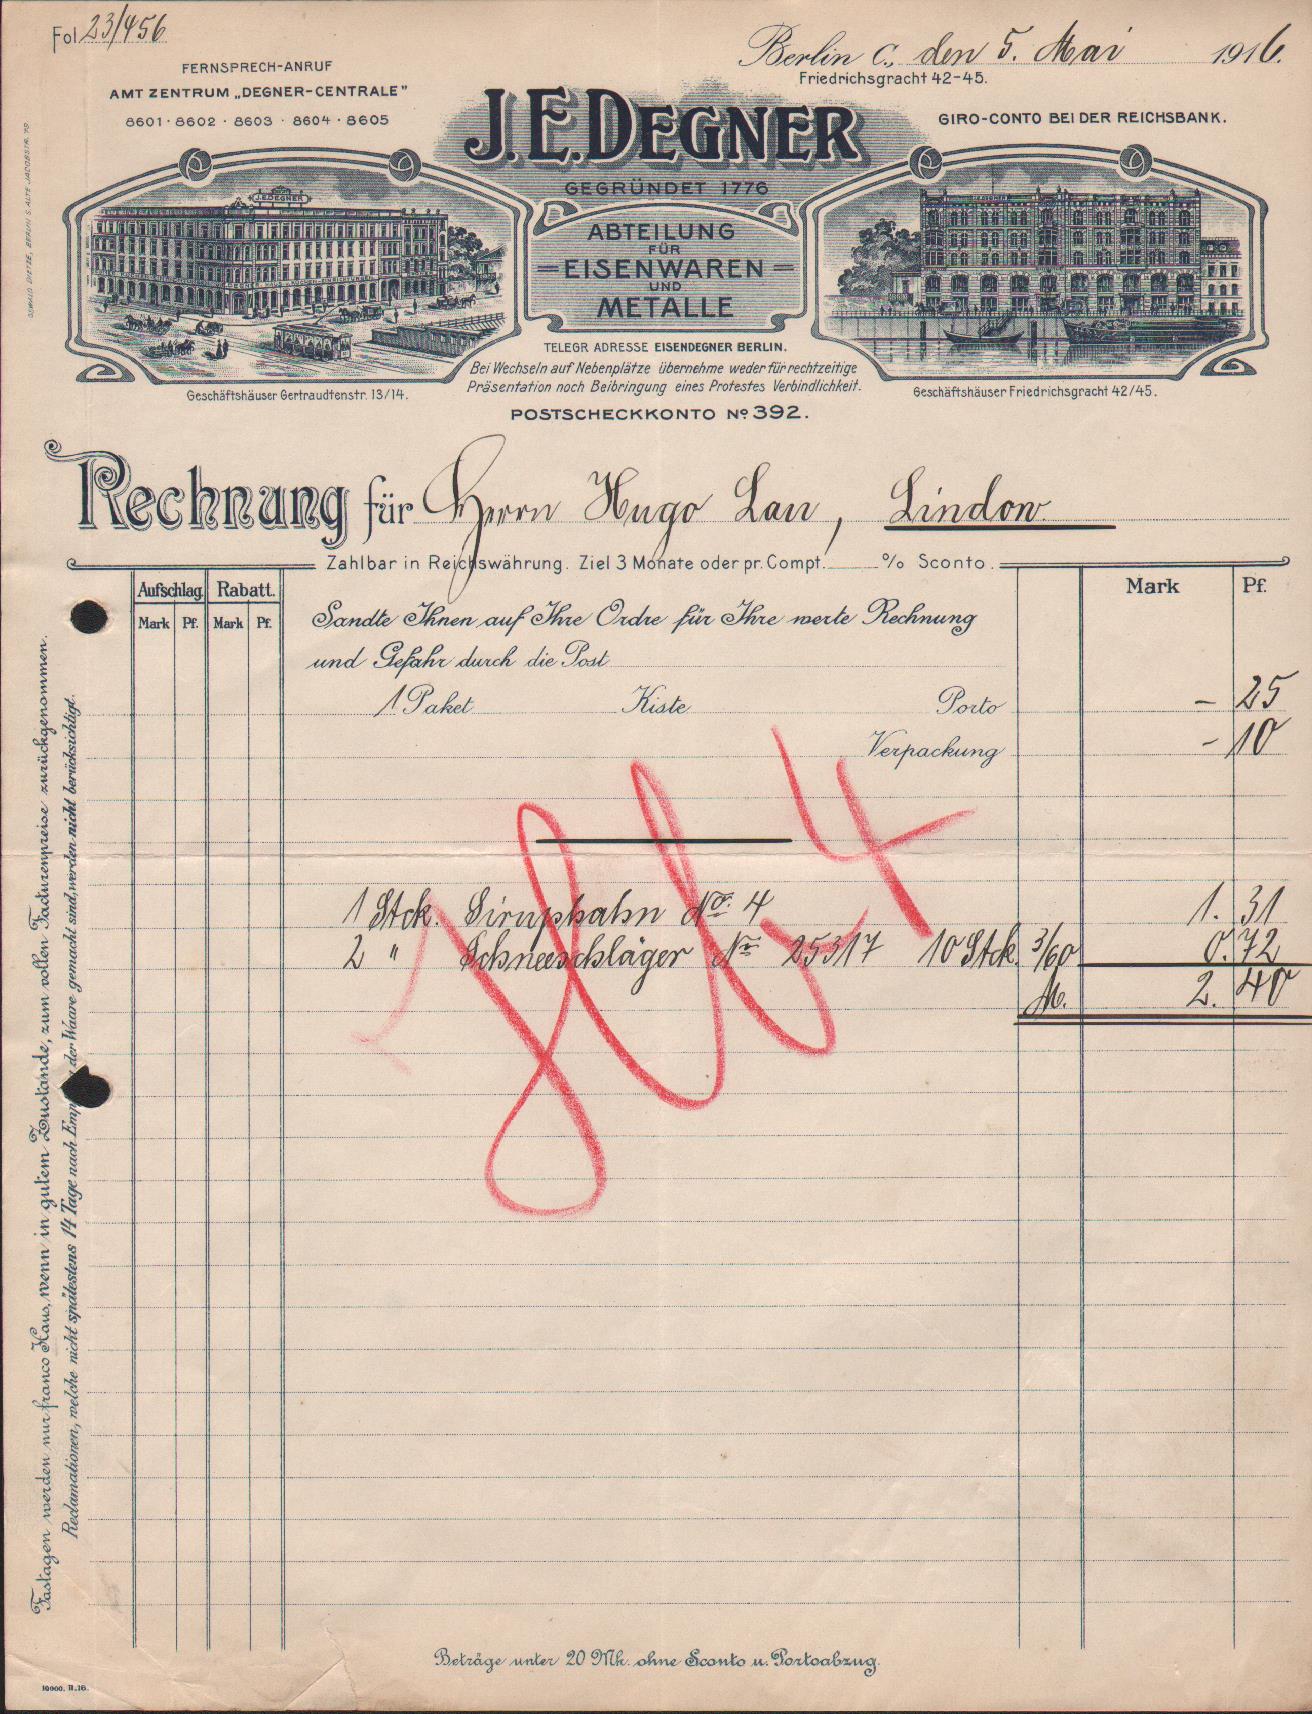 Fol 23/456
Berlin C., den 5. Mai 1916.
Friedrichsgracht 42-45.
FERNSPRECH-ANRUF
AMT ZENTRUM „DEGNER-CENTRALE"
8601 · 8602 · 8603 · 8604 · 8605
J. E. DEGNER
GIRO-CONTO BEI DER REICHSBANK.
GEGRÜNDET 1776
J.E.DEGNER
ABTEILUNG
FÜR
EISENWAREN
UND
METALLE
TELEGR ADRESSE EISENDEGNER BERLIN.
Bei Wechseln auf Nebenplätze übernehme weder für rechtzeitige
Präsentation noch Beibringung eines Protestes Verbindlichkeit.
Geschäftshäuser Gertraudtenstr. 13/14.
Geschäftshäuser Friedrichsgracht 42/45.
POSTSCHECKKONTO No 392.
Rechnung für Herrn Hugo Lau, Lindow
Zahlbar in Reichswährung. Ziel 3 Monate oder pr. Compt. % Sconto.
Aufschlag Rabatt. Mark Pf.
Mark Pf. Mark Pf.
Sandte Ihnen auf Ihre Ordre für Ihre werte Rechnung
und Gefahr durch die Post
1 Paket Kiste Porto – 25
Verpackung – 10
1 Stck. Siruphahn No. 4 1. 31
2 " Schneeschläger No 25317 10 Stck. 3/60 0.72
M. 2. 40
Fastagen werden nur franco Haus, wenn in gutem Zustande, zum vollen Facturenpreise zurückgenommen.
Reclamationen, welche nicht spätestens 14 Tage nach Emp der Waare gemacht sind, werden nicht berücksichtigt.
Beträge unter 20 Mk. ohne Sconto u. Portoabzug.
10000. II.16.